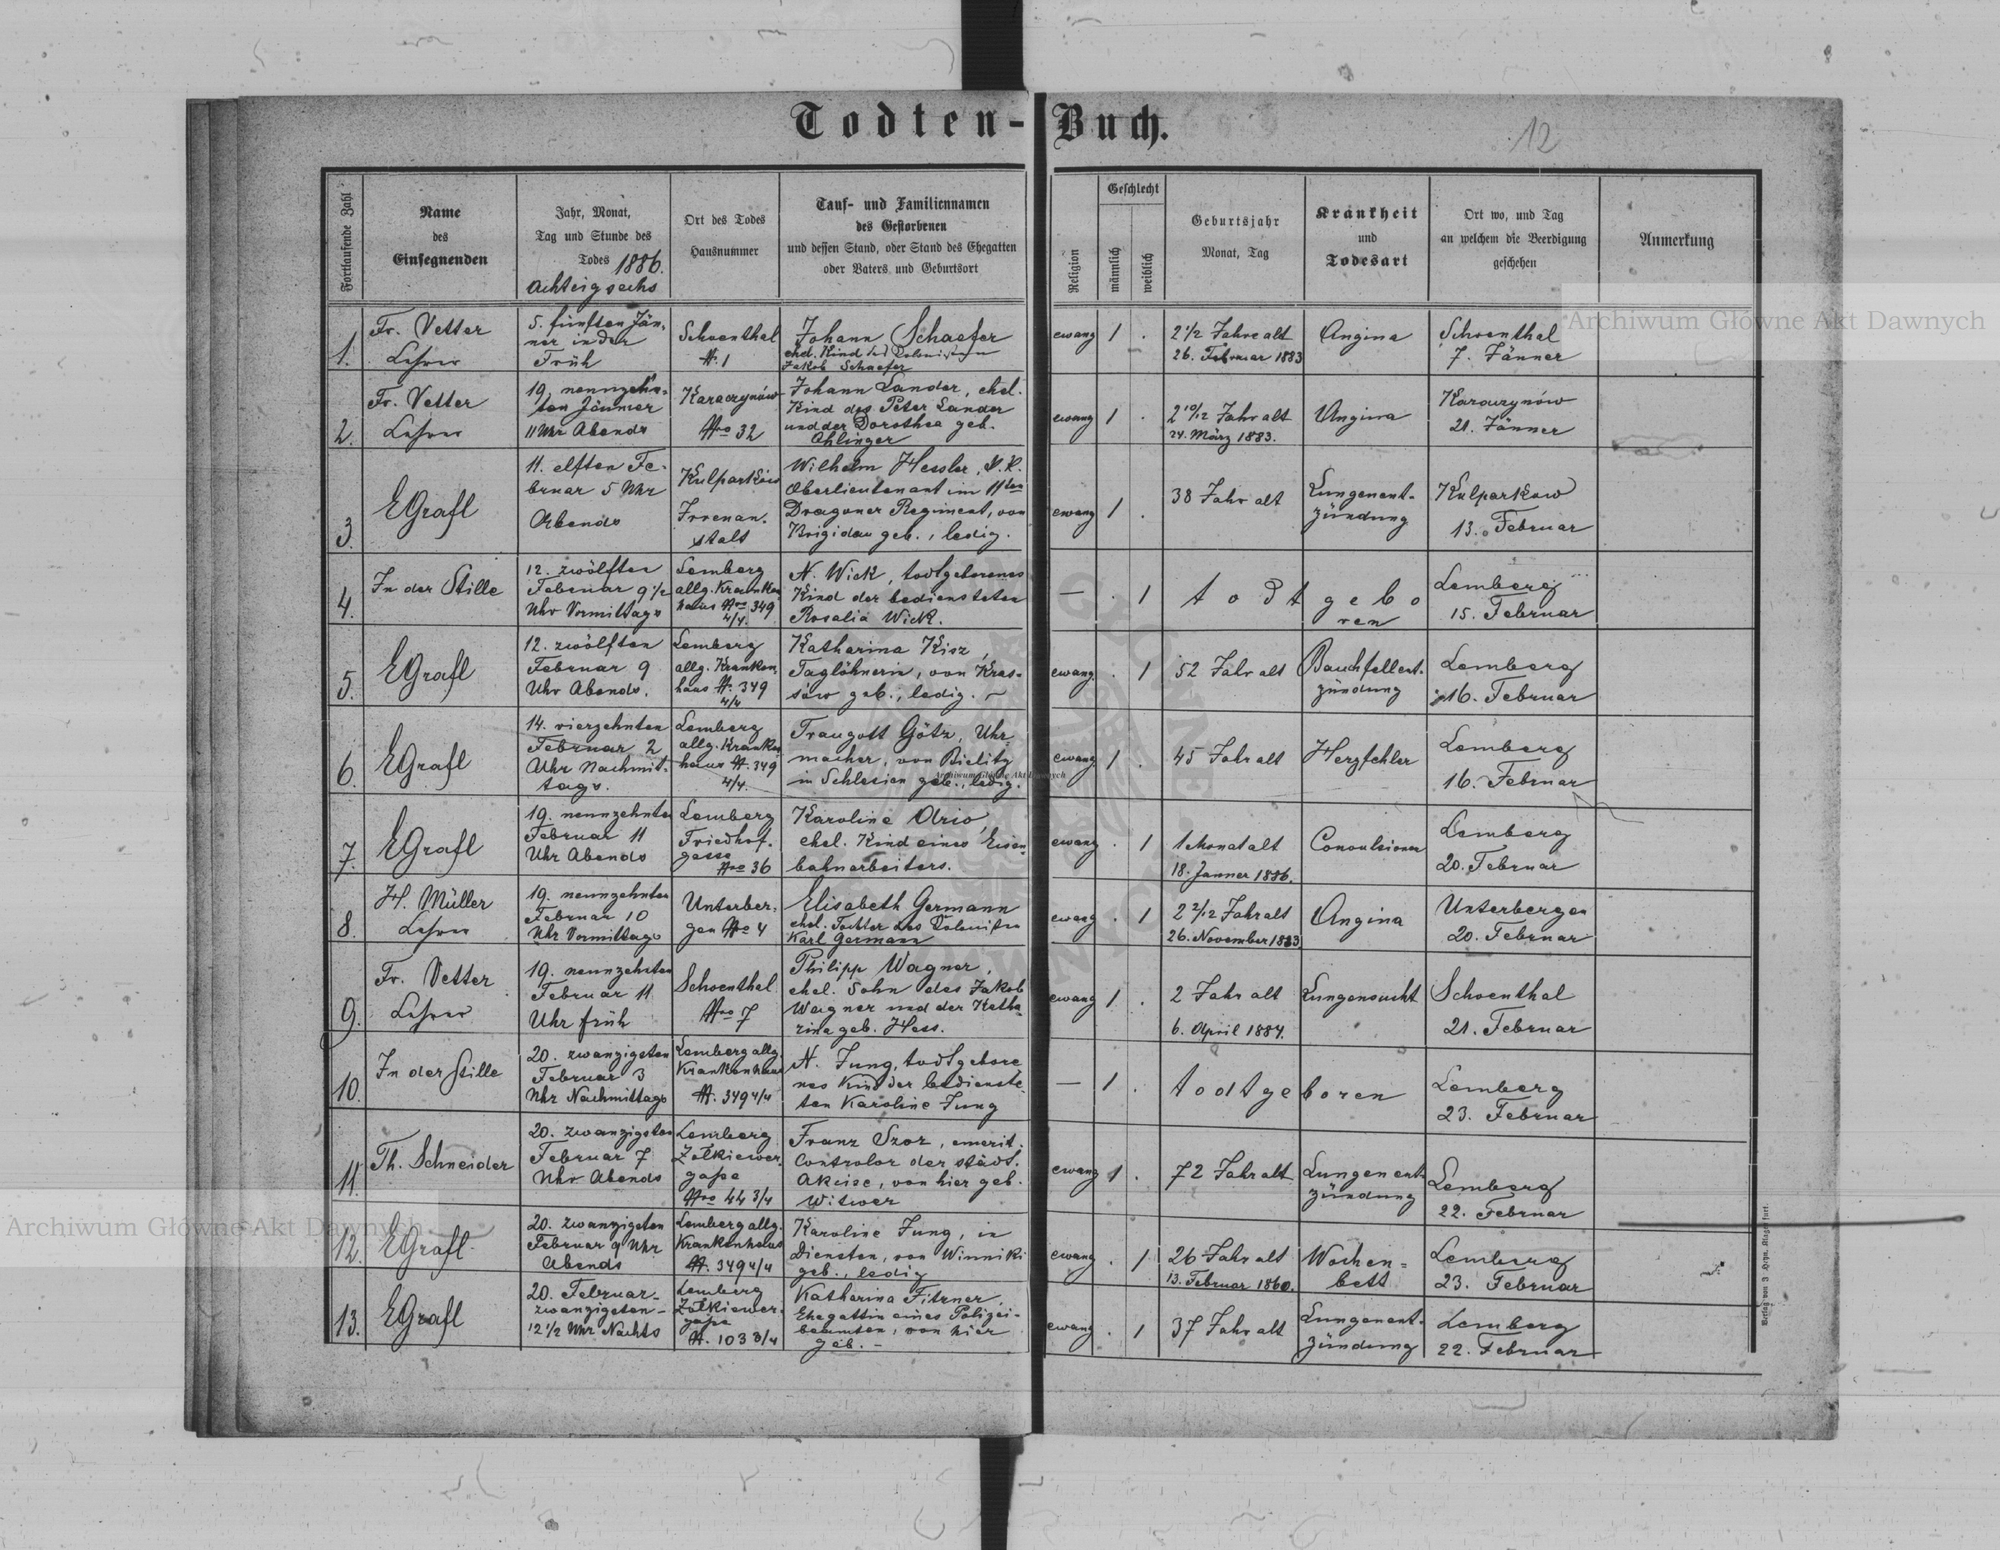 Todten-Buch.
12
Fortlaufende Zahl
Name
des
Einsegnenden
Jahr, Monat,
Tag und Stunde des
Todes 1886.
Achtzigsechs
Ort des Todes
Hausnummer
Tauf- und Familiennamen
des Gestorbenen
und dessen Stand, oder Stand des Ehegatten
oder Vaters und Geburtsort
Religion
Geschlecht
männlich
weiblich
Geburtsjahr
Monat, Tag
Krankheit
und
Todesart
Ort wo, und Tag
an welchem die Beerdigung
geschehen
Anmerkung
1.
Fr. Vetter
Lehrer
5. fünften Jän-
ner in der
Früh
Schoenthal
N. 1
Johann Schaefer
ehel. Kind des Colonisten
Jakob Schaefer
ewang
1 .
2 1/2 Jahre alt
26. Februar 1883
Angina
Schoenthal
7. Jänner
2.
Fr. Vetter
Lehrer
19. neunzehn-
ten Jänner
11 Uhr Abends
Karaczynów
Nro 32
Johann Lander, ehel.
Kind des Peter Lander
und der Dorothea geb.
Ohlinger
ewang
1 .
2 10/12 Jahr alt
24. März 1883.
Angina
Karaczynów
21. Jänner
3.
EGrafl
11. elften Fe-
bruar 5 Uhr
Abends
Kulparków
Irrenan-
stalt
Wilhelm Hessler, K. K.
Oberlieutenant im 11ten
Dragoner Regiment, von
Brigidau geb., ledig.
ewang
1 .
38 Jahr alt
Lungenent-
zündung
Kulparkow
13. Februar
4.
In der Stille
12. zwölften
Februar 9 1/2
Uhr Vormittags
Lemberg
allg. Kranken
haus Nro 349
4/4.
N. Wick, todtgeborenes
Kind der bediensteten
Rosalia Wick.
—
. 1
todt gebo
ren
Lemberg
15. Februar
5.
EGrafl
12. zwölften
Februar 9
Uhr Abends.
Lemberg
allg. Kranken
haus N. 349
4/4
Katharina Kisz,
Taglöhnerin, von Kras-
sów geb., ledig. –
ewang
. 1
52 Jahr alt
Bauchfellent-
zündung
Lemberg
16. Februar
6.
EGrafl
14. vierzehnten
Februar 2
Uhr Nachmit-
tags.
Lemberg
allg. Kranken
haus N. 349
4/4.
Traugott Götz, Uhr-
macher, von Bielitz
in Schlesien geb., ledig.
ewang
1 .
45 Jahr alt
Herzfehler
Lemberg
16. Februar
7.
EGrafl
19. neunzehnten
Februar 11
Uhr Abends
Lemberg
Friedhof-
gasse
Nro 36
Karoline Ario,
ehel. Kind eines Eisen-
bahnarbeiters.
ewang
. 1
1 Monat alt
18. Jänner 1886.
Convulsionen
Lemberg
20. Februar
8.
H. Müller
Lehrer
19. neunzehnten
Februar 10
Uhr Vormittags
Unterber-
gen Nro 4
Elisabeth Germann
ehel. Tochter des Colonisten
Karl Germann
ewang
. 1
2 2/12 Jahr alt
26. November 1883.
Angina
Unterbergen
20. Februar
9.
Fr. Vetter
Lehrer
19. neunzehnten
Februar 11
Uhr früh
Schoenthal
Nro 7
Philipp Wagner,
ehel. Sohn des Jakob
Wagner und der Katha
rina geb. Hess.
ewang
1 .
2 Jahr alt
6. April 1884.
Lungensucht
Schoenthal
21. Februar
10.
In der Stille
20. zwanzigsten
Februar 3
Uhr Nachmittags
Lemberg allg.
Krankenhaus
N. 349 4/4
N. Jung, todtgebore
nes Kind der bedienste
ten Karoline Jung
—
1 .
todtgeboren
Lemberg
23. Februar
11.
Th. Schneider
20. zwanzigsten
Februar 7
Uhr Abends
Lemberg
Zołkiewer-
gasse
Nro 44 3/4
Franz Szor, emerit.
Controlor der städt.
Akcise, von hier geb.
Witwer
ewang
1 .
72 Jahr alt
Lungenent-
zündung
Lemberg
22. Februar
12.
EGrafl.
20. zwanzigsten
Februar 9 Uhr
Abends
Lemberg allg.
Krankenhaus
N. 349 4/4
Karoline Jung, in
Diensten, von Winniki
geb., ledig
ewang
. 1
26 Jahr alt
13. Februar 1860.
Wochen-
bett
Lemberg
23. Februar
13.
EGrafl
20. Februar-
zwanzigsten-
12 1/2 Uhr Nachts
Lemberg
Zołkiewer-
gasse
N. 103 3/4
Katharina Fitzner,
Ehegattin eines Polizei-
beamten, von hier
geb. –
ewang
. 1
37 Jahr alt
Lungenent-
zündung
Lemberg
22. Februar
Archiwum Główne Akt Dawnych
Archiwum Główne Akt Dawnych
Archiwum Główne Akt Dawnych